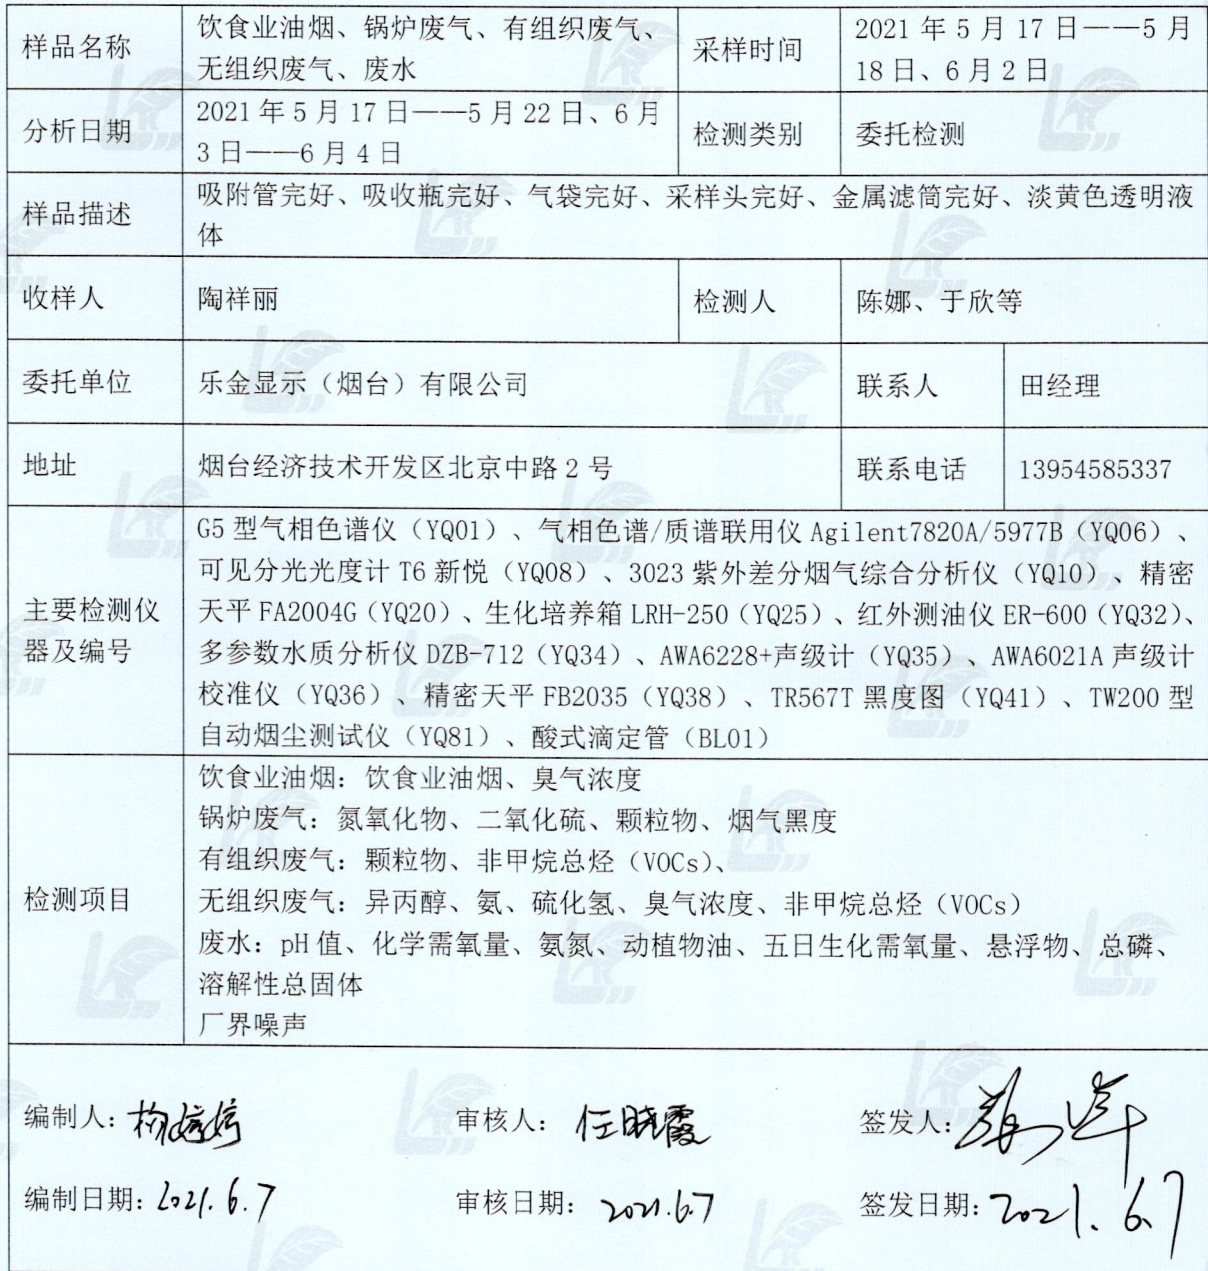 样品名称
饮食业油烟、锅炉废气、有组织废气、
无组织废气、废水
采样时间
2021 年 5 月 17 日——5 月
18 日、6 月 2 日
分析日期
2021 年 5 月 17 日——5 月 22 日、6 月
3 日——6 月 4 日
检测类别
委托检测
样品描述
吸附管完好、吸收瓶完好、气袋完好、采样头完好、金属滤筒完好、淡黄色透明液
体
收样人
陶祥丽
检测人
陈娜、于欣等
委托单位
乐金显示（烟台）有限公司
联系人
田经理
地址
烟台经济技术开发区北京中路 2 号
联系电话
13954585337
主要检测仪
器及编号
G5 型气相色谱仪（YQ01）、气相色谱/质谱联用仪 Agilent7820A/5977B（YQ06）、
可见分光光度计 T6 新悦（YQ08）、3023 紫外差分烟气综合分析仪（YQ10）、精密
天平 FA2004G（YQ20）、生化培养箱 LRH-250（YQ25）、红外测油仪 ER-600（YQ32）、
多参数水质分析仪 DZB-712（YQ34）、AWA6228+声级计（YQ35）、AWA6021A 声级计
校准仪（YQ36）、精密天平 FB2035（YQ38）、TR567T 黑度图（YQ41）、TW200 型
自动烟尘测试仪（YQ81）、酸式滴定管（BL01）
检测项目
饮食业油烟：饮食业油烟、臭气浓度
锅炉废气：氮氧化物、二氧化硫、颗粒物、烟气黑度
有组织废气：颗粒物、非甲烷总烃（VOCs）、
无组织废气：异丙醇、氨、硫化氢、臭气浓度、非甲烷总烃（VOCs）
废水：pH 值、化学需氧量、氨氮、动植物油、五日生化需氧量、悬浮物、总磷、
溶解性总固体
厂界噪声
编制人：
审核人：任晓霞
签发人：
编制日期：2021.6.7
审核日期：2021.6.7
签发日期：2021.6.7